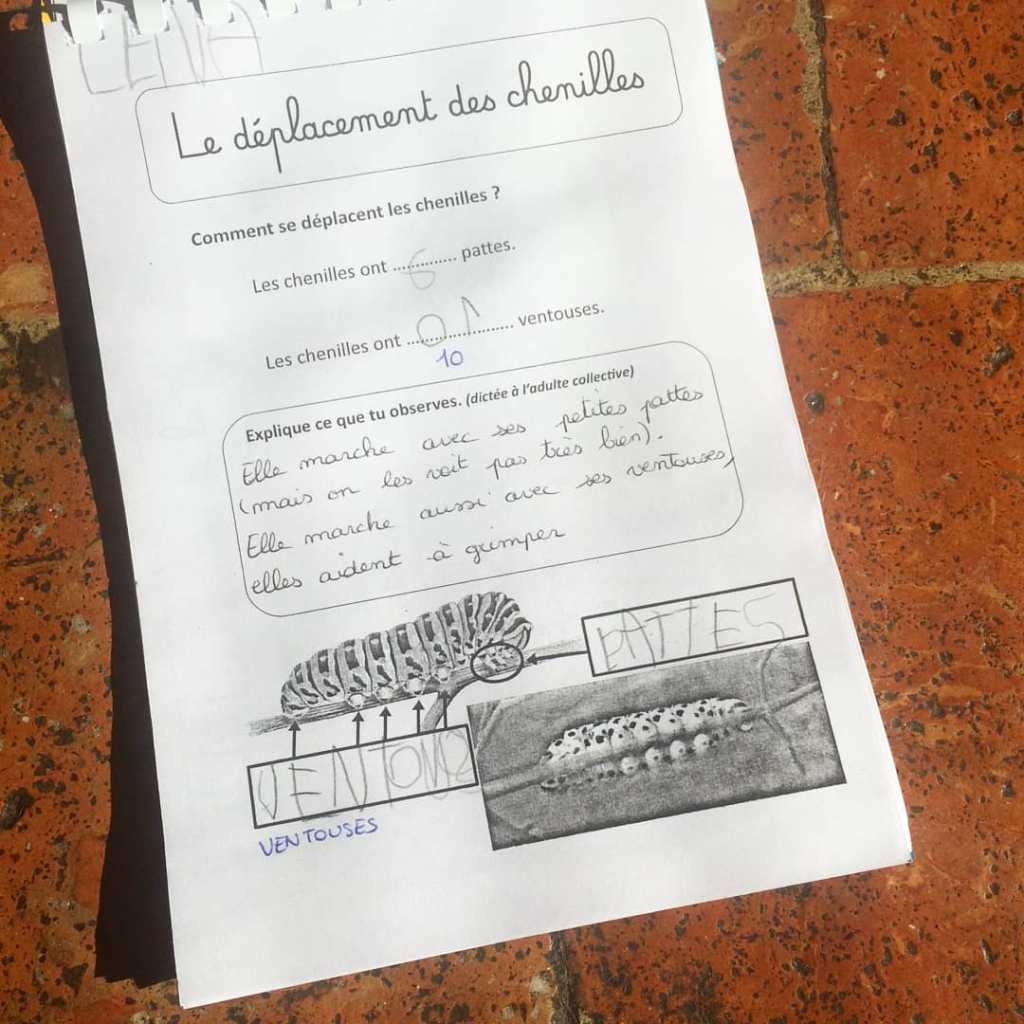 LENA
Le déplacement des chenilles
Comment se déplacent les chenilles ?
Les chenilles ont ............. 6 pattes.
Les chenilles ont ...................... 01 ventouses.
10
Explique ce que tu observes. (dictée à l'adulte collective)
Elle marche avec ses petites pattes
(mais on les voit pas très bien).
Elle marche aussi avec ses ventouses,
elles aident à grimper
PATTES
VENTOUSES